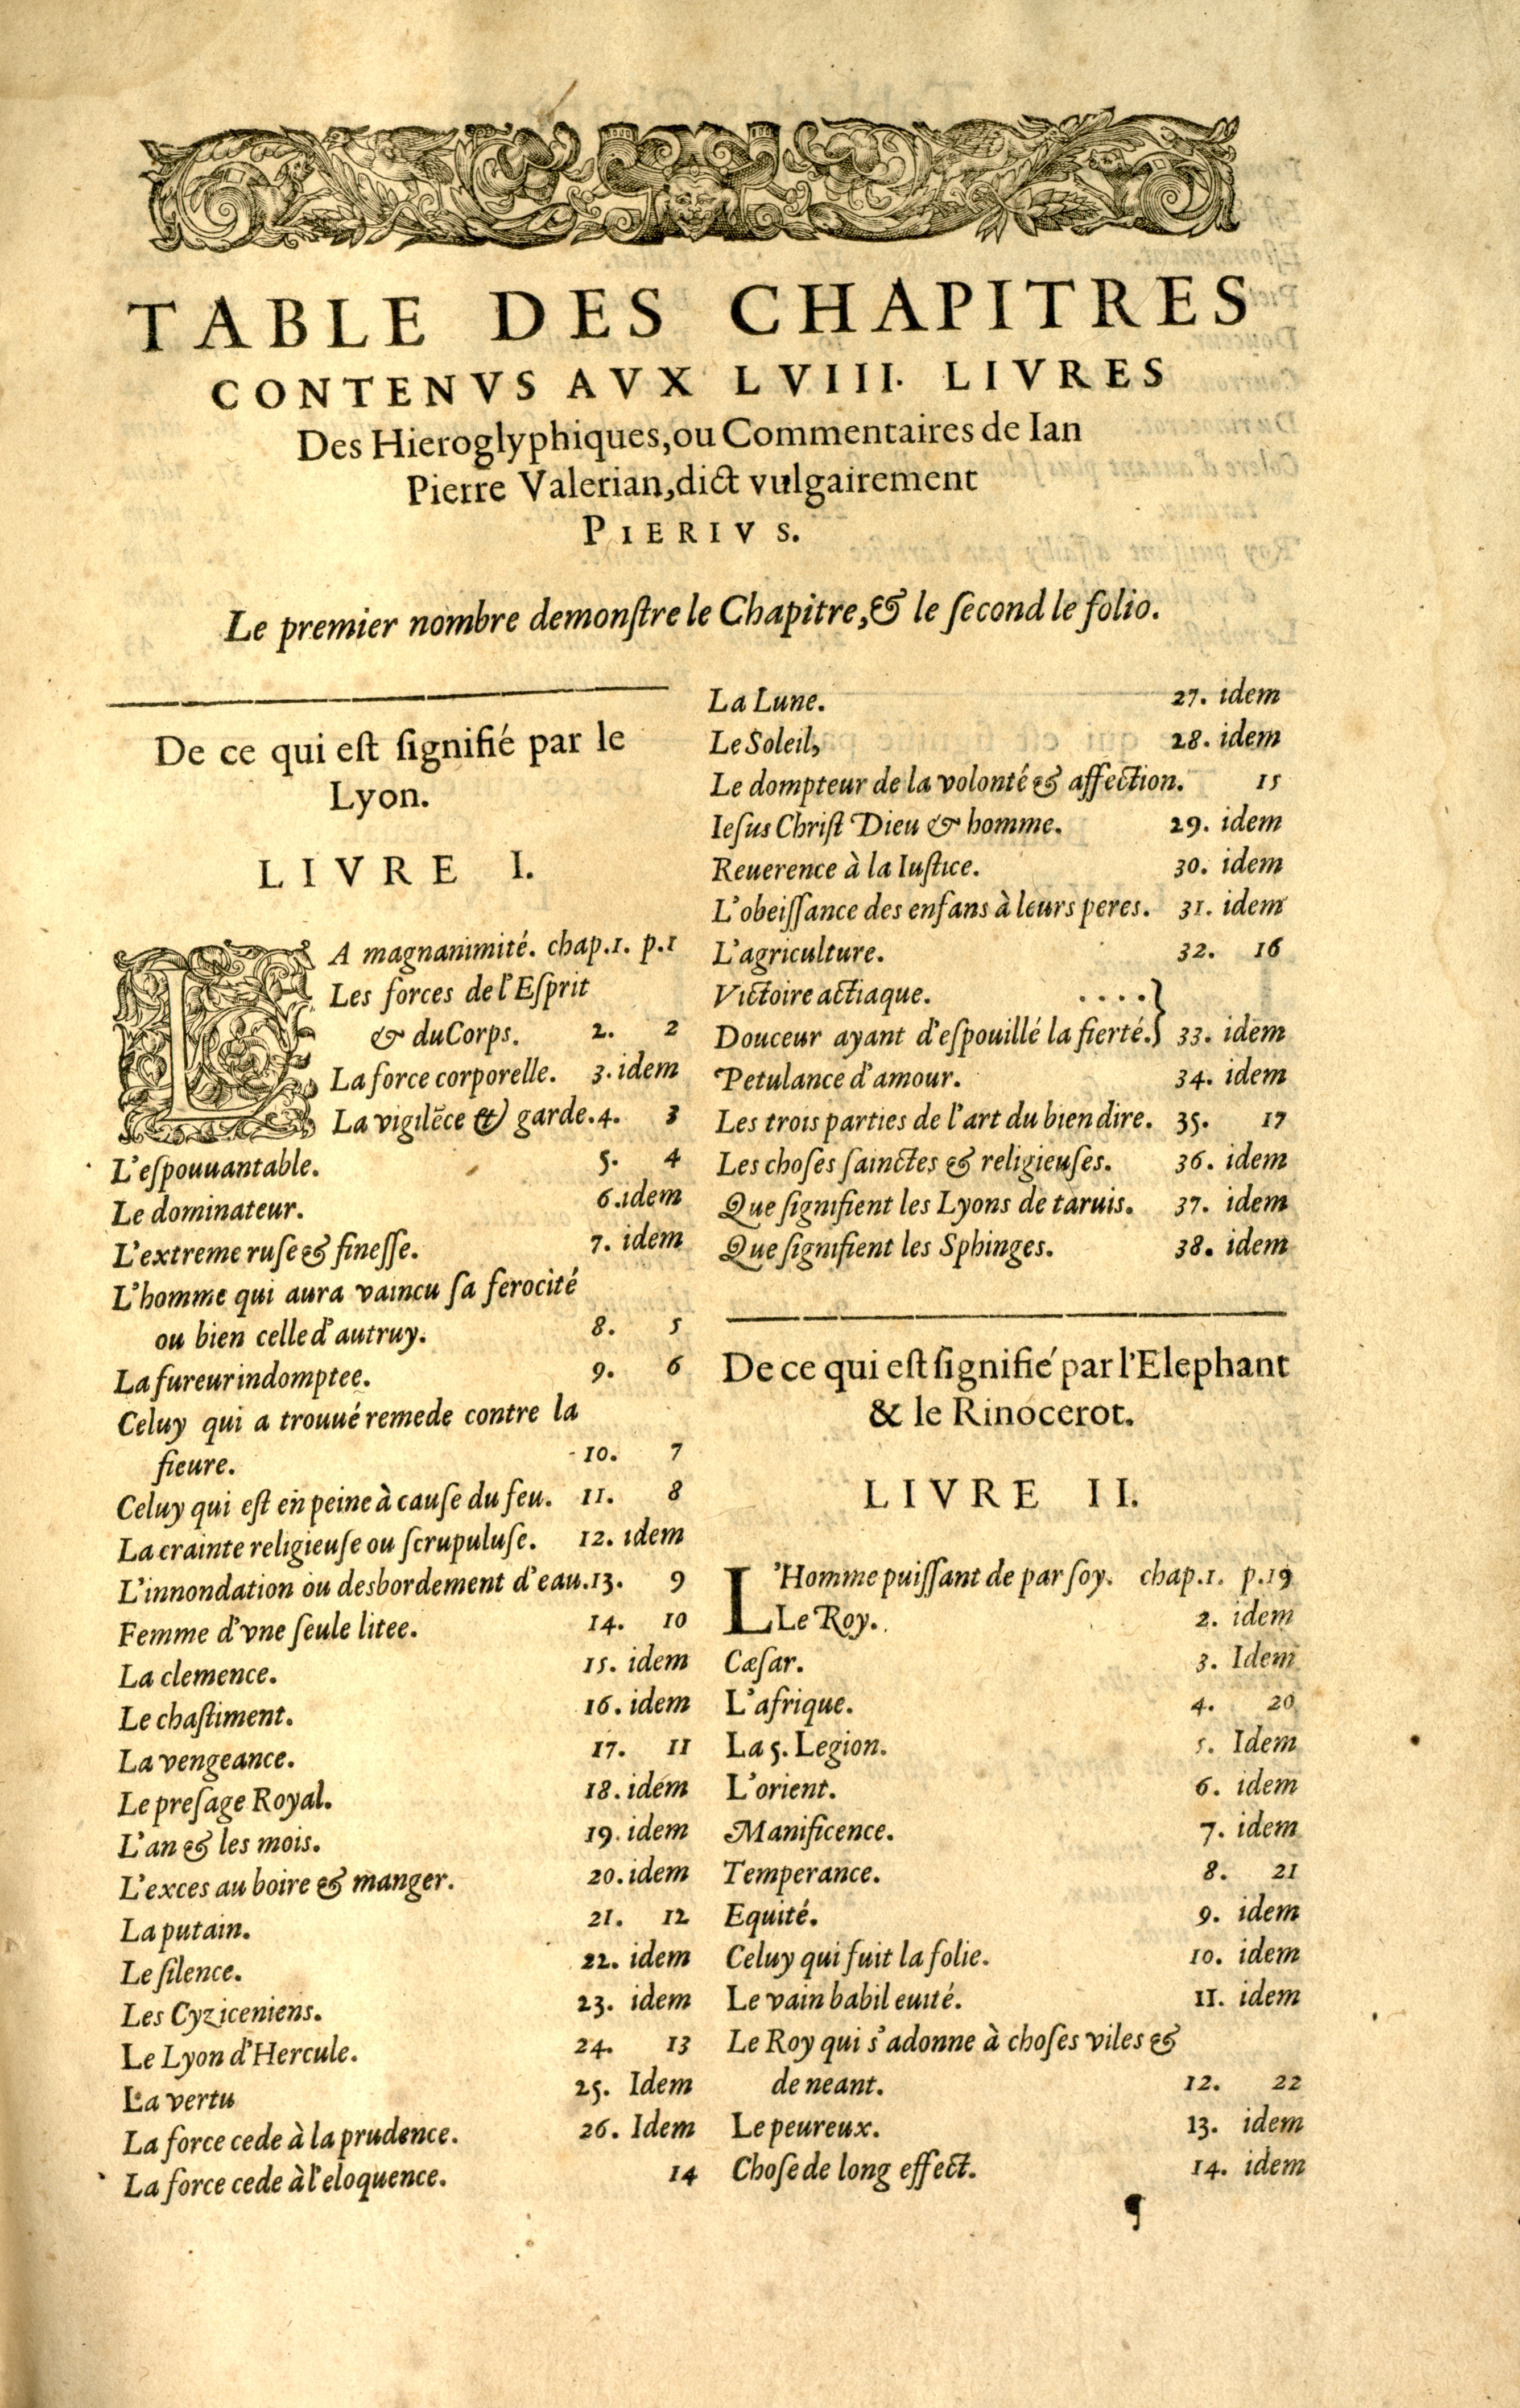 TABLE DES CHAPITRES
CONTENVS AVX LVIII. LIVRES
Des Hieroglyphiques, ou Commentaires de Ian
Pierre Valerian, dict vulgairement
PIERIVS.
Le premier nombre demonſtre le Chapitre, & le ſecond le folio.
De ce qui eſt ſignifié par le
Lyon.
LIVRE I.
LA magnanimité. chap.1. p.1
Les forces de l'Eſprit
& du Corps. 2. 2
La force corporelle. 3. idem
La vigilẽce & garde. 4. 3
L'eſpouuantable. 5. 4
Le dominateur. 6. idem
L'extreme ruſe & fineſſe. 7. idem
L'homme qui aura vaincu ſa ferocité
ou bien celle d'autruy. 8. 5
La fureur indomptee. 9. 6
Celuy qui a trouué remede contre la
fieure. 10. 7
Celuy qui eſt en peine à cauſe du feu. 11. 8
La crainte religieuſe ou ſcrupuluſe. 12. idem
L'innondation ou desbordement d'eau. 13. 9
Femme d'vne ſeule litee. 14. 10
La clemence. 15. idem
Le chaſtiment. 16. idem
La vengeance. 17. 11
Le preſage Royal. 18. idem
L'an & les mois. 19. idem
L'exces au boire & manger. 20. idem
La putain. 21. 12
Le ſilence. 22. idem
Les Cyziceniens. 23. idem
Le Lyon d'Hercule. 24. 13
La vertu 25. Idem
La force cede à la prudence. 26. Idem
La force cede à l'eloquence. 14
La Lune. 27. idem
Le Soleil, 28. idem
Le dompteur de la volonté & affection. 15
Ieſus Chriſt Dieu & homme. 29. idem
Reuerence à la Iuſtice. 30. idem
L'obeiſſance des enfans à leurs peres. 31. idem
L'agriculture. 32. 16
Victoire actiaque. ....}
Douceur ayant d'eſpouillé la fierté.} 33. idem
Petulance d'amour. 34. idem
Les trois parties de l'art du bien dire. 35. 17
Les choſes ſainctes & religieuſes. 36. idem
Que ſignifient les Lyons de taruis. 37. idem
Que ſignifient les Sphinges. 38. idem
De ce qui eſt ſignifié par l'Elephant
& le Rinocerot.
LIVRE II.
L'Homme puiſſant de par ſoy. chap.1. p.19
Le Roy. 2. idem
Cæſar. 3. Idem
L'afrique. 4. 20
La 5. Legion. 5. Idem
L'orient. 6. idem
Manificence. 7. idem
Temperance. 8. 21
Equité. 9. idem
Celuy qui fuit la folie. 10. idem
Le vain babil euité. 11. idem
Le Roy qui s'adonne à choſes viles &
de neant. 12. 22
Le peureux. 13. idem
Choſe de long effect. 14. idem
¶